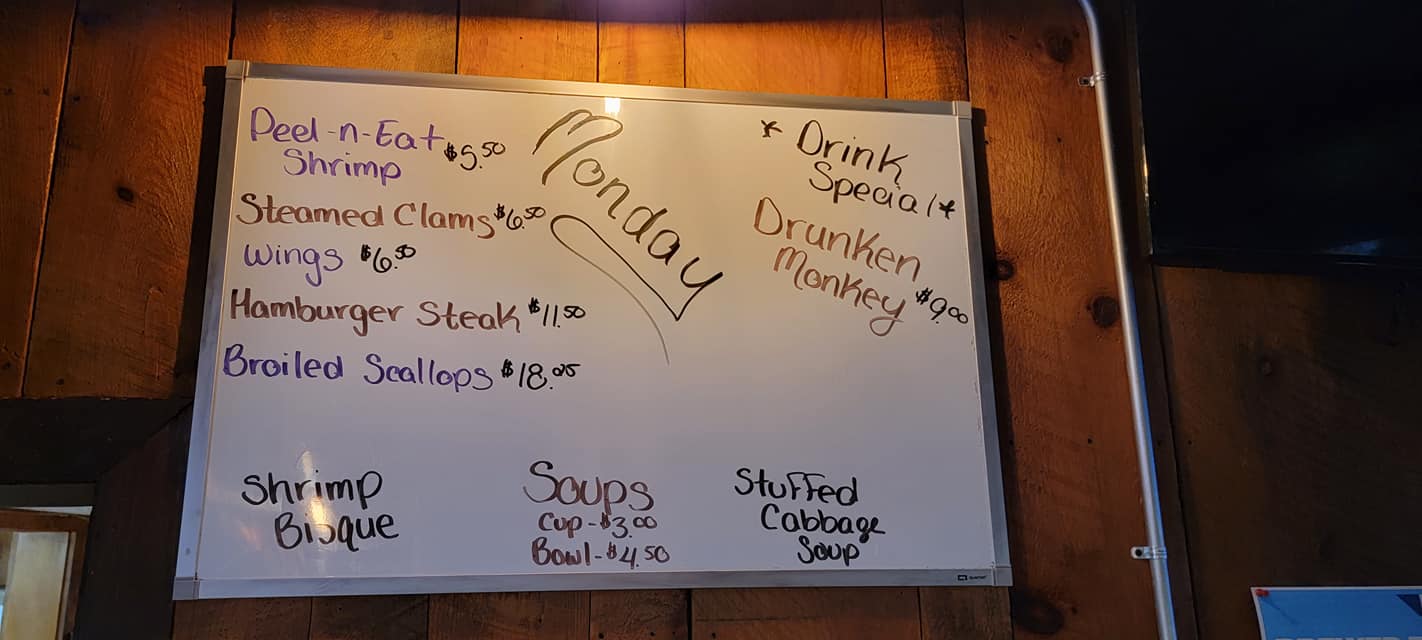 Peel-n-Eat $5.50
Shrimp
Steamed Clams $6.50
Wings $6.50
Hamburger Steak $11.50
Broiled Scallops $18.95
Monday
* Drink
Special *
Drunken
Monkey $9.00
Shrimp
Bisque
Soups
Cup - $3.00
Bowl - $4.50
Stuffed
Cabbage
Soup